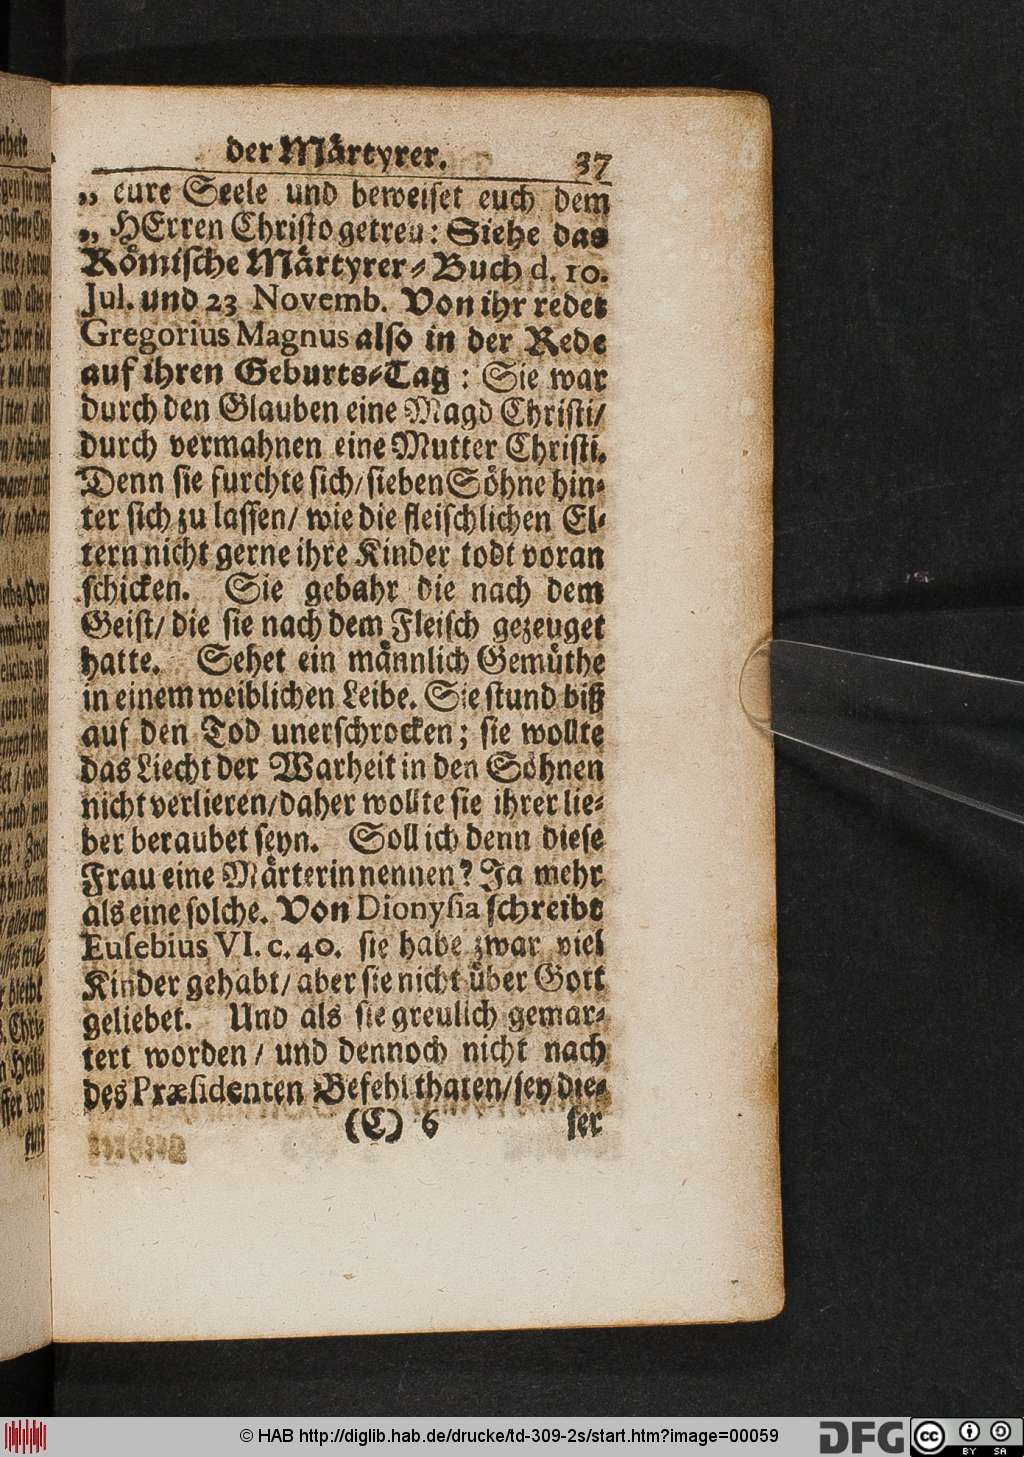 der Märtyrer. 37
„ eure Seele und beweiset euch dem
„ HErren Christo getreu: Siehe das
Römische Märtyrer-Buch d. 10.
Jul. und 23 Novemb. Von ihr redet
Gregorius Magnus also in der Rede
auf ihren Geburts-Tag: Sie war
durch den Glauben eine Magd Christi/
durch vermahnen eine Mutter Christi.
Denn sie furchte sich/ sieben Söhne hin-
ter sich zu lassen/ wie die fleischlichen El-
tern nicht gerne ihre Kinder todt voran
schicken. Sie gebahr die nach dem
Geist/ die sie nach dem Fleisch gezeuget
hatte. Sehet ein männlich Gemüthe
in einem weiblichen Leibe. Sie stund biß
auf den Tod unerschrocken; sie wollte
das Liecht der Warheit in den Söhnen
nicht verlieren/ daher wollte sie ihrer lie-
ber beraubet seyn. Soll ich denn diese
Frau eine Märterin nennen? Ja mehr
als eine solche. Von Dionysia schreibt
Eusebius VI. c. 40. sie habe zwar viel
Kinder gehabt/ aber sie nicht über Gott
geliebet. Und als sie greulich gemar-
tert worden/ und dennoch nicht nach
des Præsidenten Befehl thaten/ sey die-
(C) 6 ser
© HAB http://diglib.hab.de/drucke/td-309-2s/start.htm?image=00059
DFG
cc BY SA